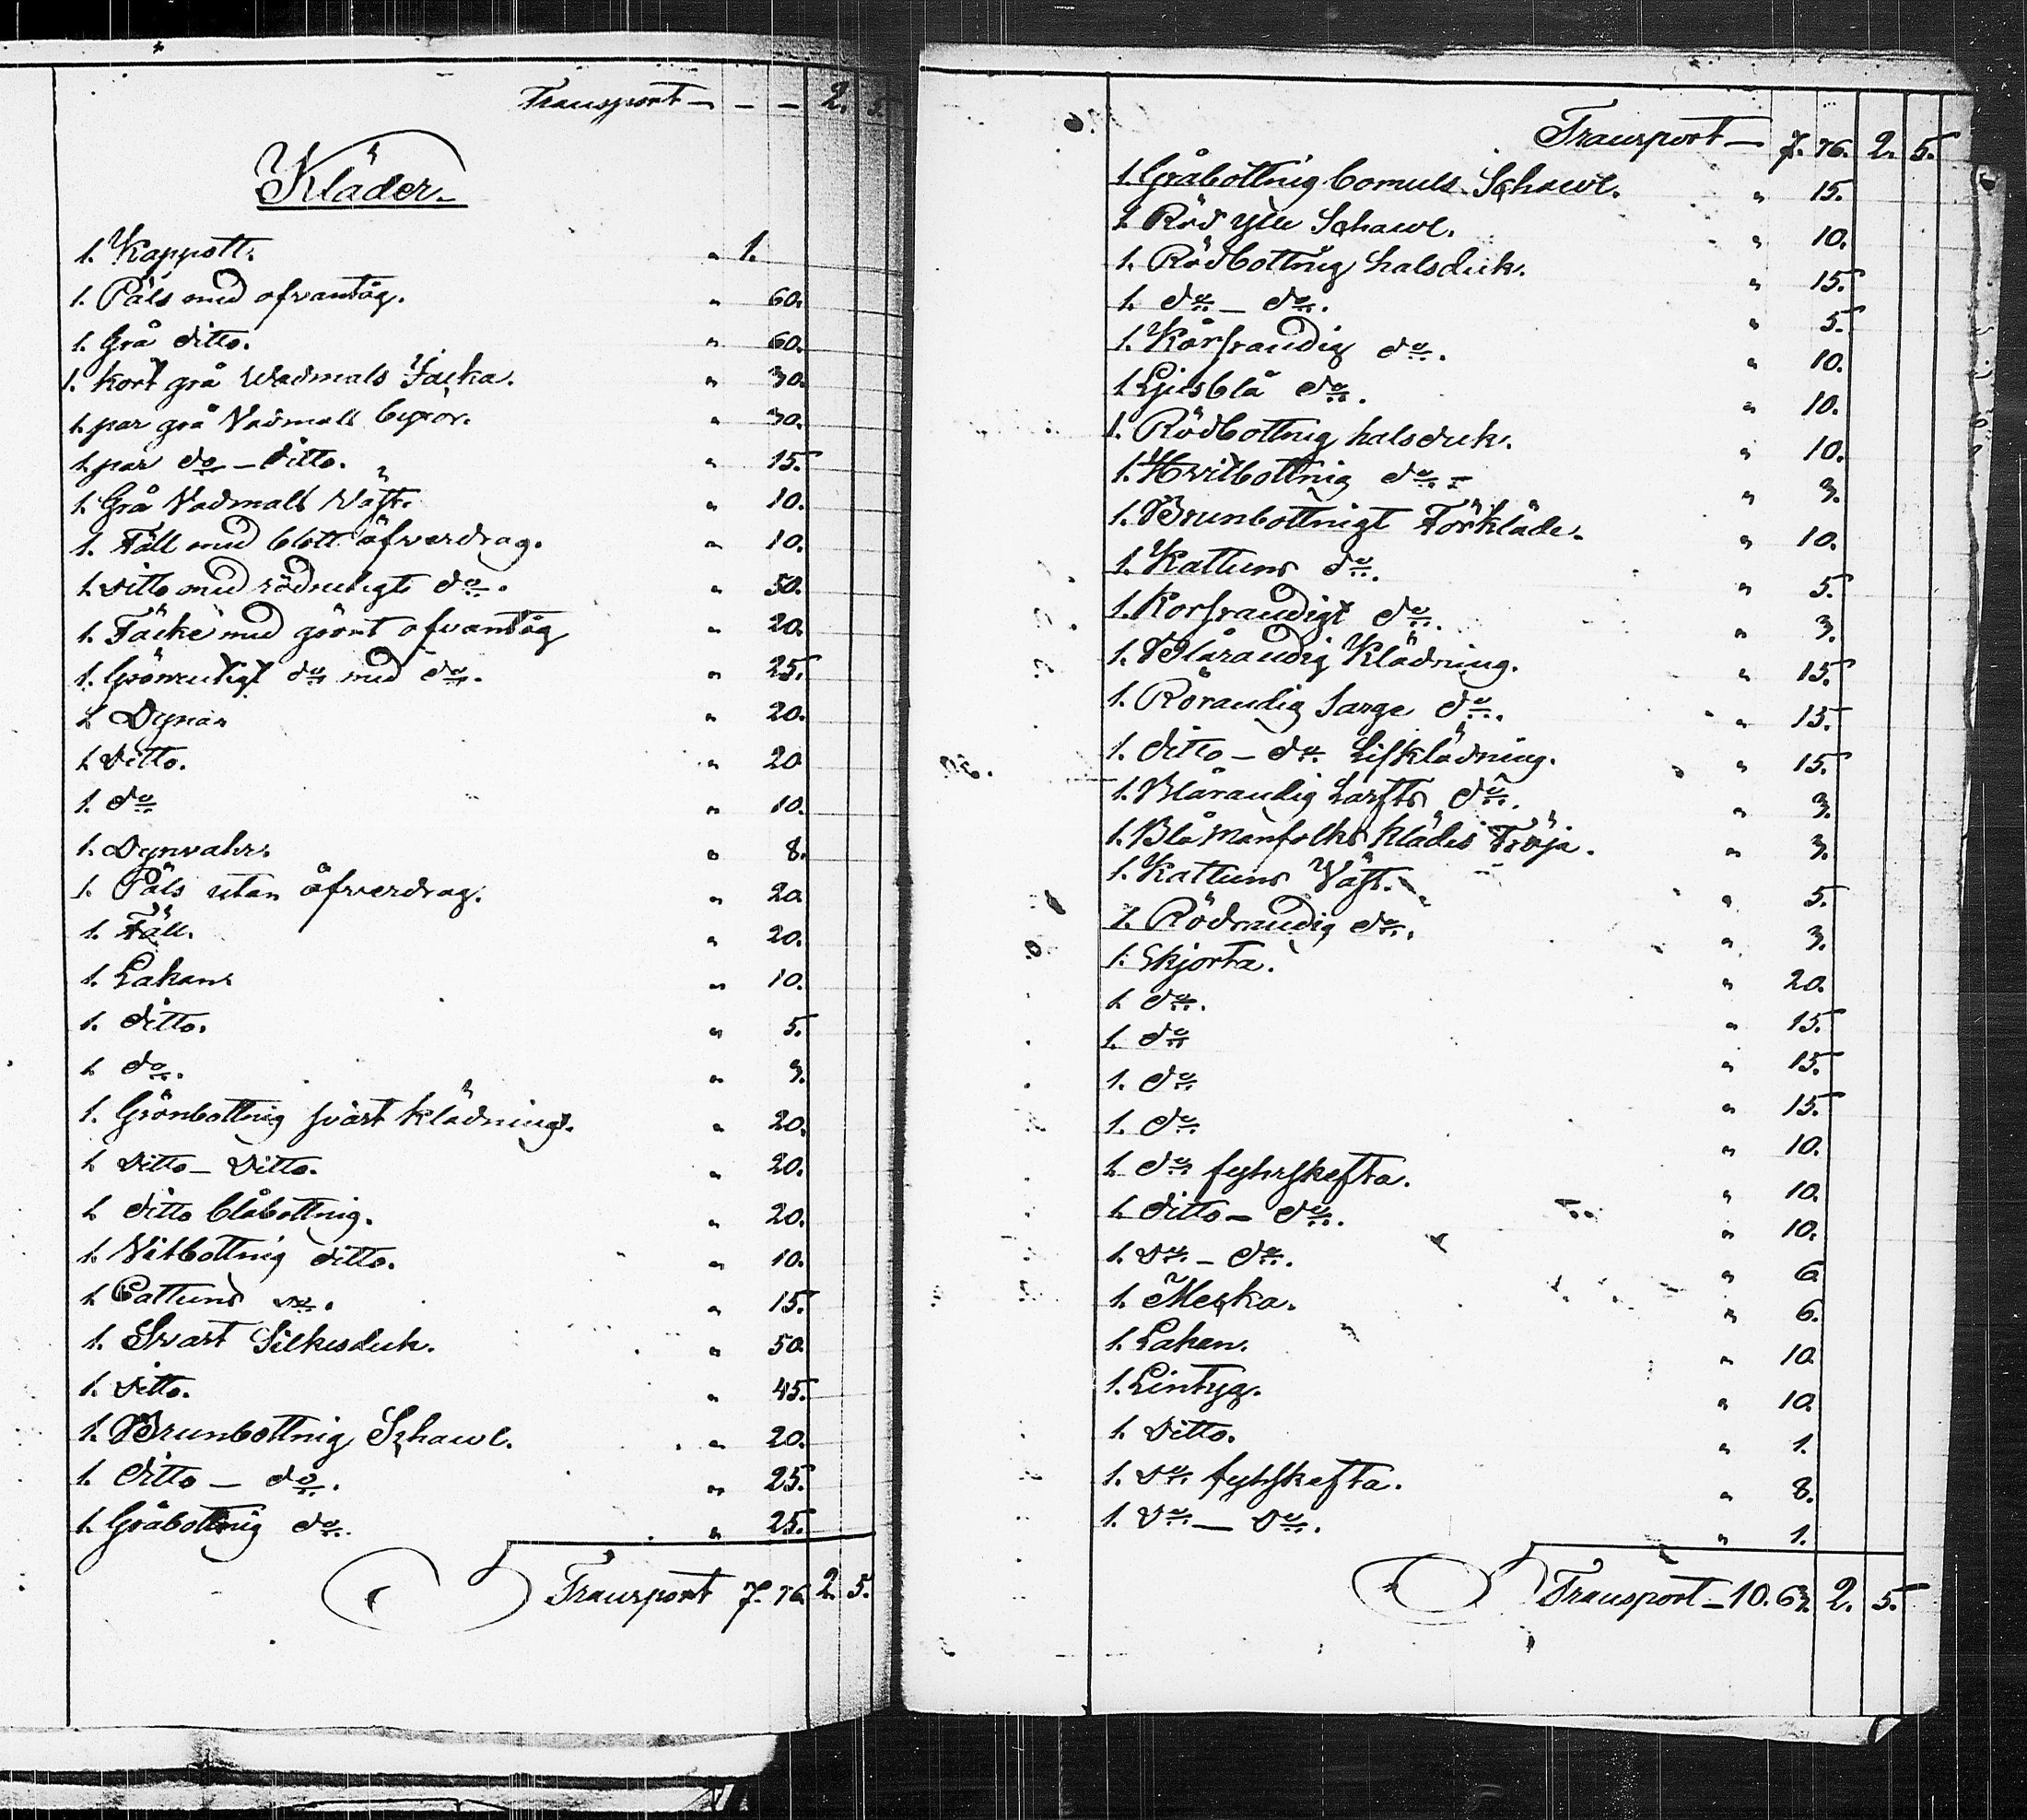 Transport — — — 2. 5.
Kläder.
1. Kappott. " 1.
1. Päls med ofvantåg. " 60.
1. Grå ditto. " 60.
1. kort grå Wadmals Jacka. " 30.
1. par grå Vadmals byxor. " 30.
1. par do — ditto. " 15.
1. Grå Vadmals Väst. " 10.
1. Fäll med blått öfverdrag. " 10.
1. Ditto med rödrutigt do. " 50.
1. Täcke med grönt ofvantåg " 20.
1. Grönrutigt do med do. " 25.
1. Dynar " 20.
1. Ditto. " 20
1. do " 10.
1. Dynvahr. " 8.
1. Päls utan öfverdrag. " 20.
1. Fäll. " 20.
1. Lakan. " 10.
1. ditto. " 5.
1. do. " 3.
1. Grönbottnig svart klädning. " 20.
1. Ditto — Ditto. " 20.
1. ditto blåbottnig. " 20.
1. Vitbottnig ditto. " 10.
1. Cattuns do. " 15.
1. Svart Silkesduk. " 50.
1. Ditto. " 45.
1. Brunbottnig Schawl. " 20.
1. Ditto — do. " 25.
1. Gråbottnig do. " 25.
Transport 7. 76. 2. 5.
Transport — 7. 76. 2. 5.
1. Gråbottnig bomuls Schawl. " 15.
1. Röd ylle Schawl. " 10.
1. Rödbottnig halsduk. " 15.
1. do — do. " 5.
1. Korsrandig do. " 10.
1. Ljusblå do. " 10.
1. Rödbottnig halsduk. " 10.
1. Hvitbottnig do. " 3.
1. Brunbottnigt Förkläde. " 10.
1. Kattuns do. " 5.
1. Korsrandigt do. " 3.
1. Blårandig Klädning. " 15.
1. Rörandig Sarge do. " 15.
1. ditto — do Lifklädning. " 15.
1. Blårandig Larfts do. " 3.
1. Blå Manfolks Klädes Tröja. " 3.
1. Kattuns Väst. " 5.
1. Rödrandig do. " 3.
1. Skjorta. " 20.
1. do. " 15.
1. do " 15.
1. do " 15.
1. do " 10.
1. do fyhrskefta. " 10.
1. ditto — do. " 10.
1. do — do. " 6.
1. Meska. " 6.
1. Lakan. " 10.
1. Lintyg. " 10.
1. Ditto. " 1.
1. do fyhrskefta. " 8.
1. Do — Do. " 1.
Transport — 10. 63. 2. 5.